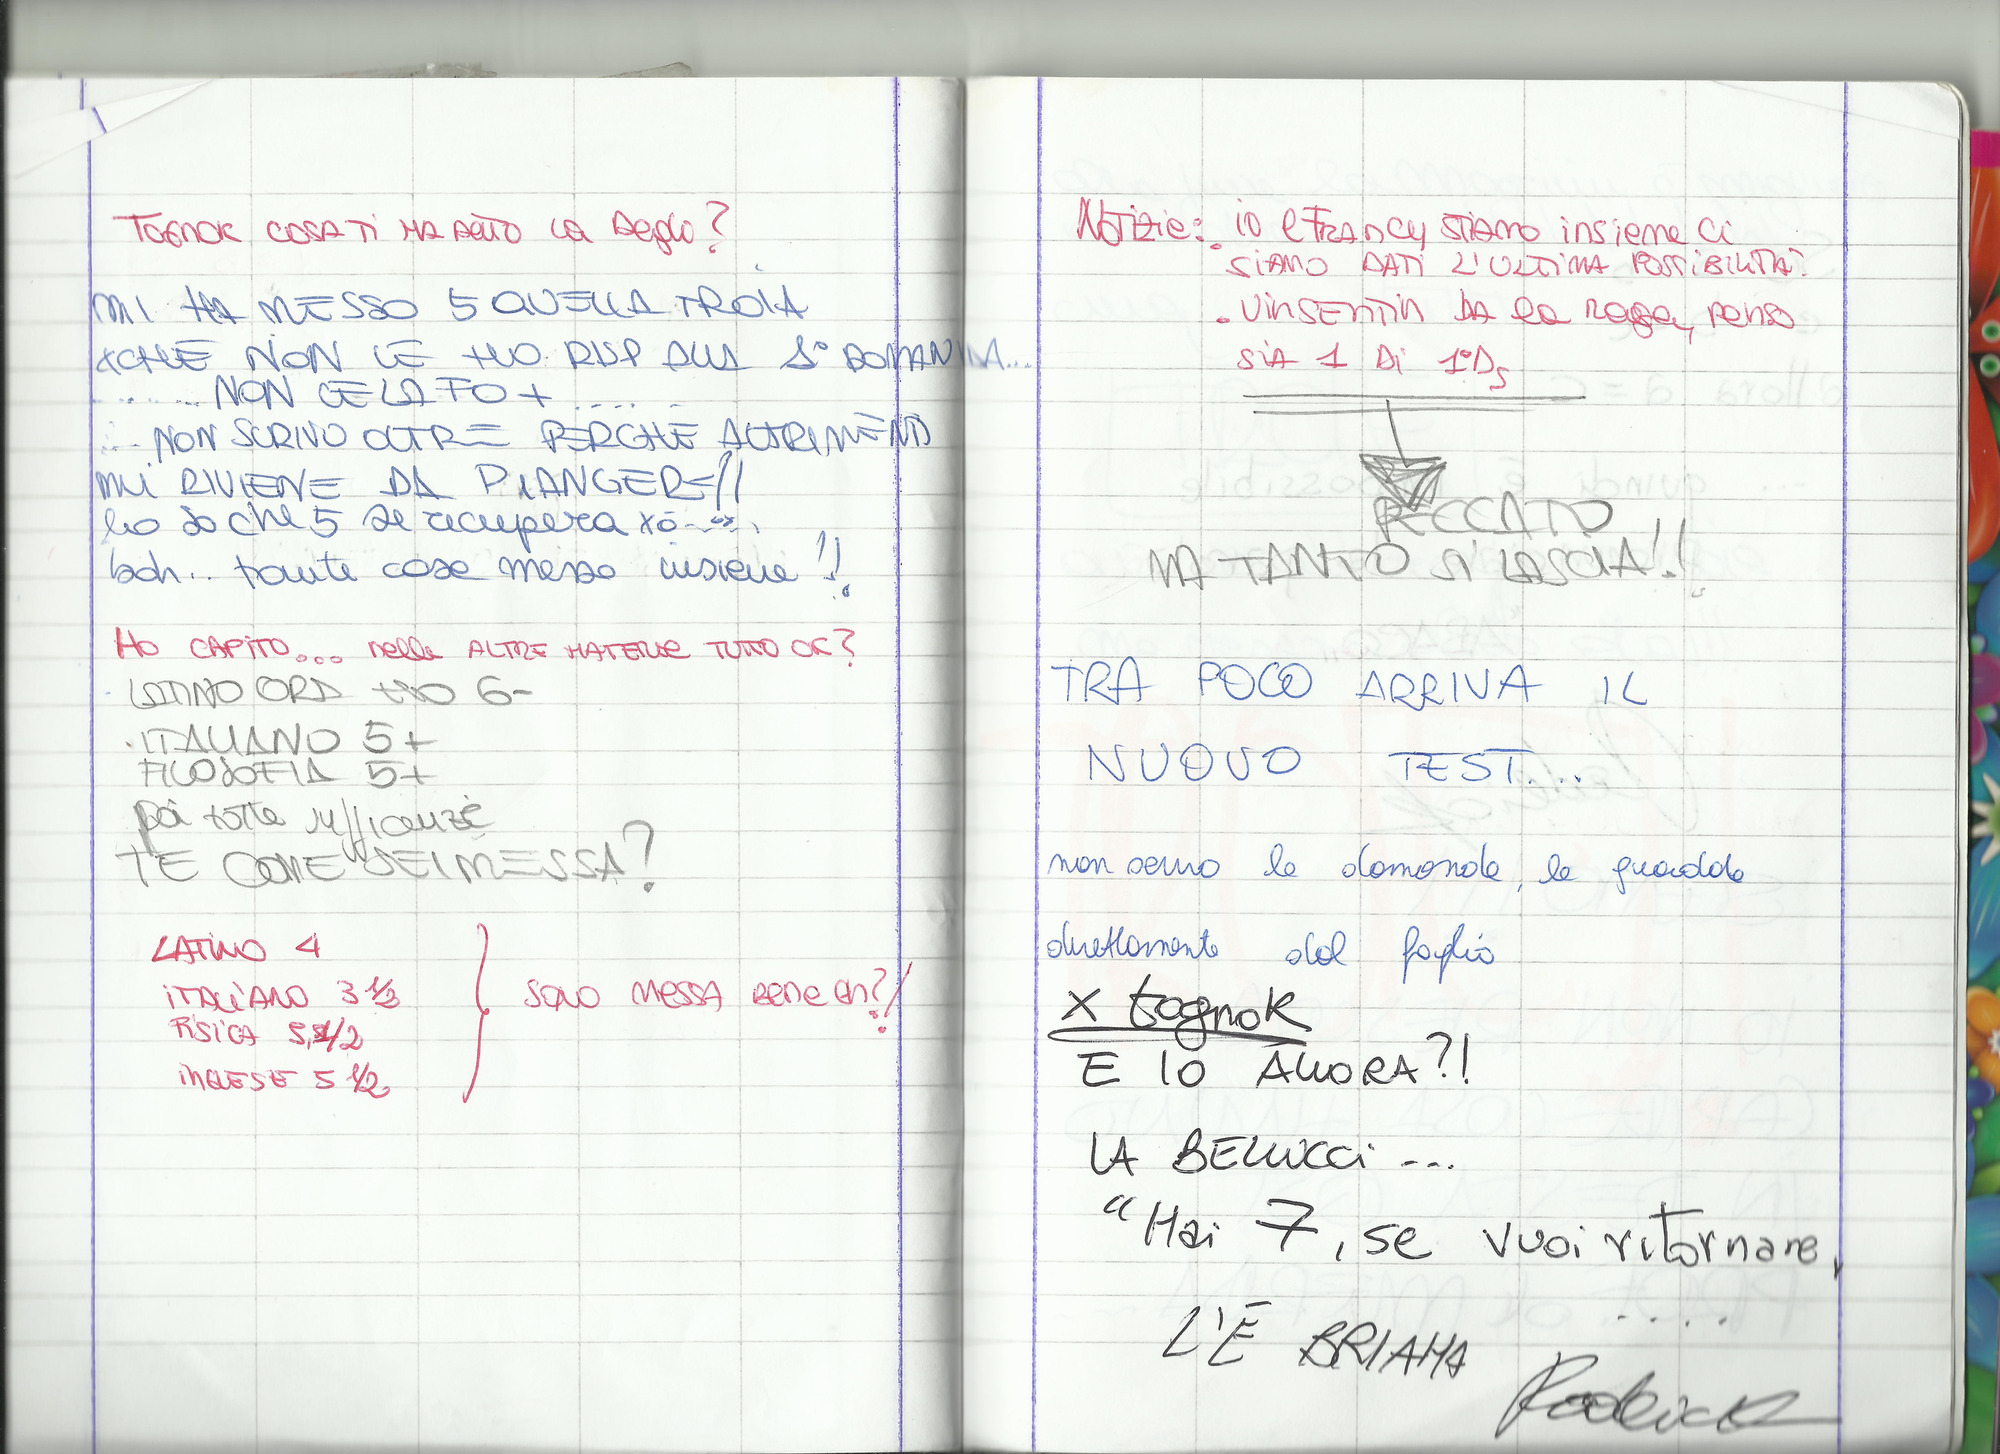 TOGNOK COSA TI HA DETTO LA
MI HA MESSO 5 QUELLA TROIA
XCHÈ NON LE HO RISP ALLA 1° DOMANDA...
...... NON CE LA FO + ......
... NON SCRIVO OLTRE PERCHÈ ALTRIMENTI
MI RIVIENE DA PIANGERE!!
lo so che 5 se recupera xò....
boh... tante cose messe insieme!!
HO CAPITO... nelle ALTRE MATERIE TUTTO OK?
LATINO ORA HO 6-
.ITALIANO 5+
FILOSOFIA 5+
poi tutte sufficienze
TE COME SEI MESSA?
LATINO 4
ITALIANO 3 1/2
FISICA 5 1/2
INGLESE 5 1/2
SONO MESSA BENE EH?!
NOTIZIE: . IO E FRANCY STIAMO INSIEME CI
SIAMO DATI L'ULTIMA POSSIBILITÀ.
. VINSENTIN HA LA RAGA, PENSO
SIA 1 DI 1°DS
PECCATO
MA TANTO SI LASCIA!!
TRA POCO ARRIVA IL
NUOVO TEST...
non servono le domande, le guardate
direttamente dal foglio
X tognok
E IO ALLORA?!
LA BELLUCCI ...
"Hai 7, se vuoi ritornare,
....
L'È BRIAHA
Roderick